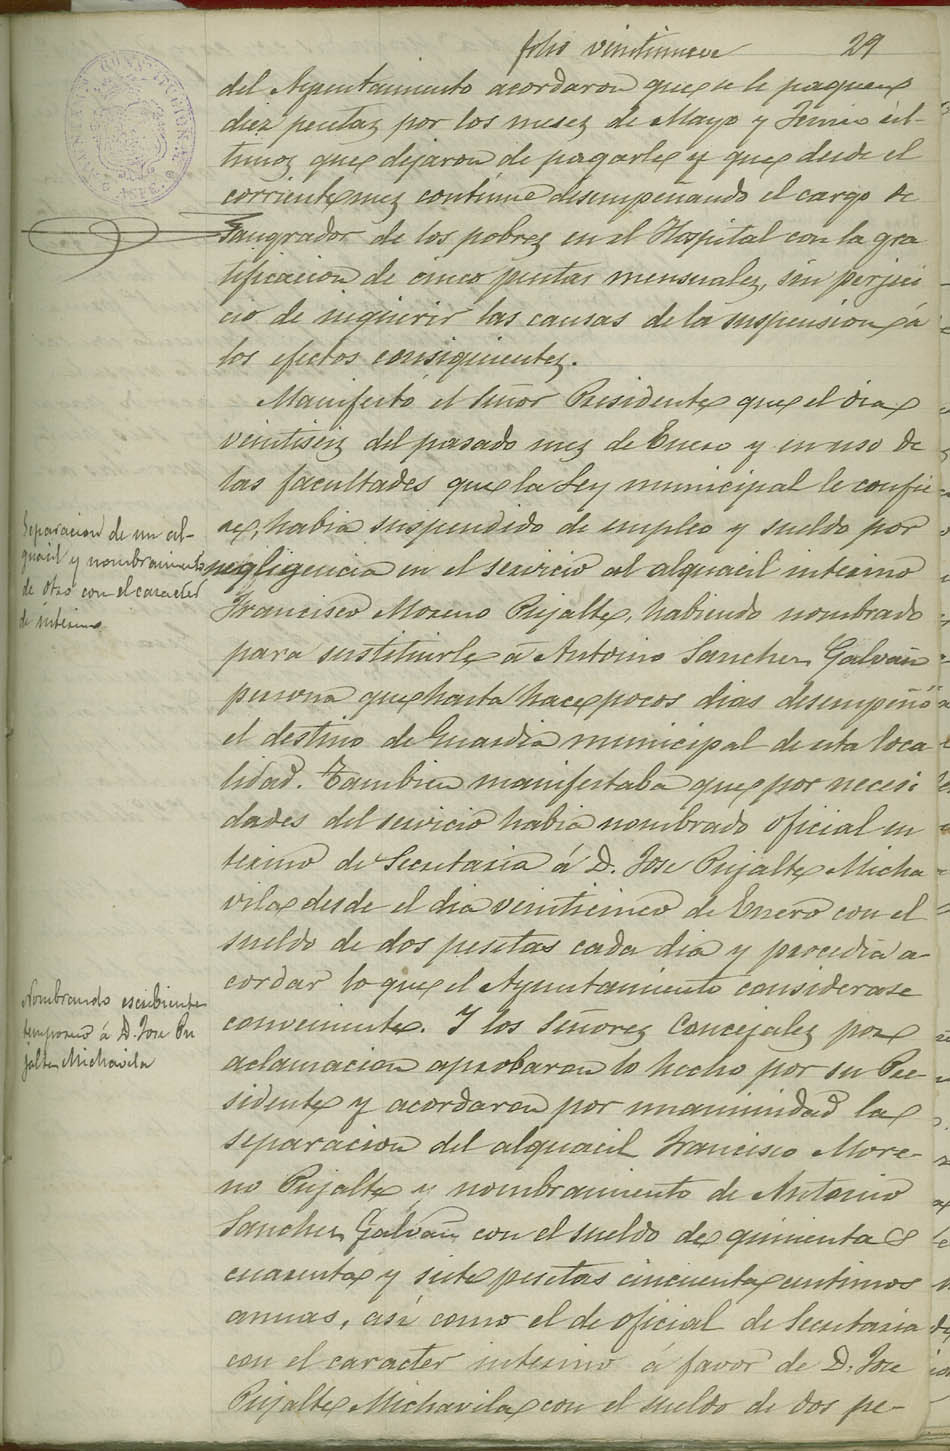 folio veintinueve 29
del Ayuntamiento acordaron que se le paguen
diez pesetas por los meses de Mayo y Junio úl-
timos que dejaron de pagarle y que desde el
corriente mes continue desempeñando el cargo de
Sangrador de los pobres en el Hospital con la gra
tificacion de cinco pesetas mensuales, sin perjui
cio de inquirir las causas de la suspension á
los efectos consiguientes.
Manifestó el Señor Presidente que el dia
veintiseis del pasado mes de Enero y en uso de
las facultades que la Ley municipal le confie
re, habia suspendido de empleo y sueldo por
Separacion de un al-
guacil y nombramiento
de otro con el caracter
de interino
negligencia en el servicio al alguacil interino
Francisco Moreno Pujalte, habiendo nombrado
para sustituirle á Antonio Sanchez Galvañ
persona que hasta hace pocos dias desempeñó
el destino de Guardia municipal de esta loca
lidad. Tambien manifestaba que por necesi
dades del servicio habia nombrado oficial in
terino de Secretaria á D. Jose Pujalte Micha
vila desde el dia veinticinco de Enero con el
sueldo de dos pesetas cada dia y procedia a-
cordar lo que el Ayuntamiento considerase
Nombrando escribiente
temporero á D. Jose Pu
jalte Michavila
conveniente. Y los Señores Concejales por
aclamacion aprobaron lo hecho por su Pre-
sidente y acordaron por unanimidad la
separacion del alguacil Francisco More-
no Pujalte y nombramiento de Antonio
Sanchez Galvañ con el sueldo de quinientas
cuarenta y siete pesetas cincuenta centimos
annas, asi como el de oficial de Secretaria
con el caracter interino á favor de D. Jose
Pujalte Michavila con el sueldo de dos pe-